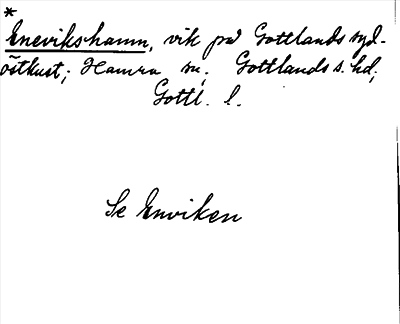 *
Enevikshamn, vik på Gottlands syd-
östkust; Hamra sn; Gottlands s. hd;
Gottl. l.
Se Enviken